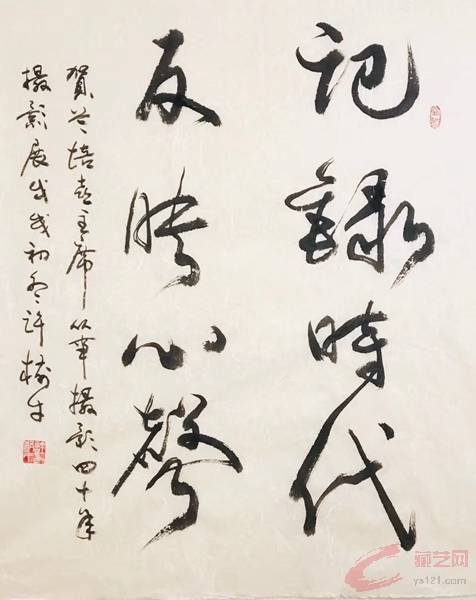 記錄時代
反映心聲
賀莶培友主席從事攝影四十年
攝影展戊戌初冬許樹生
藏艺网
ys121.com